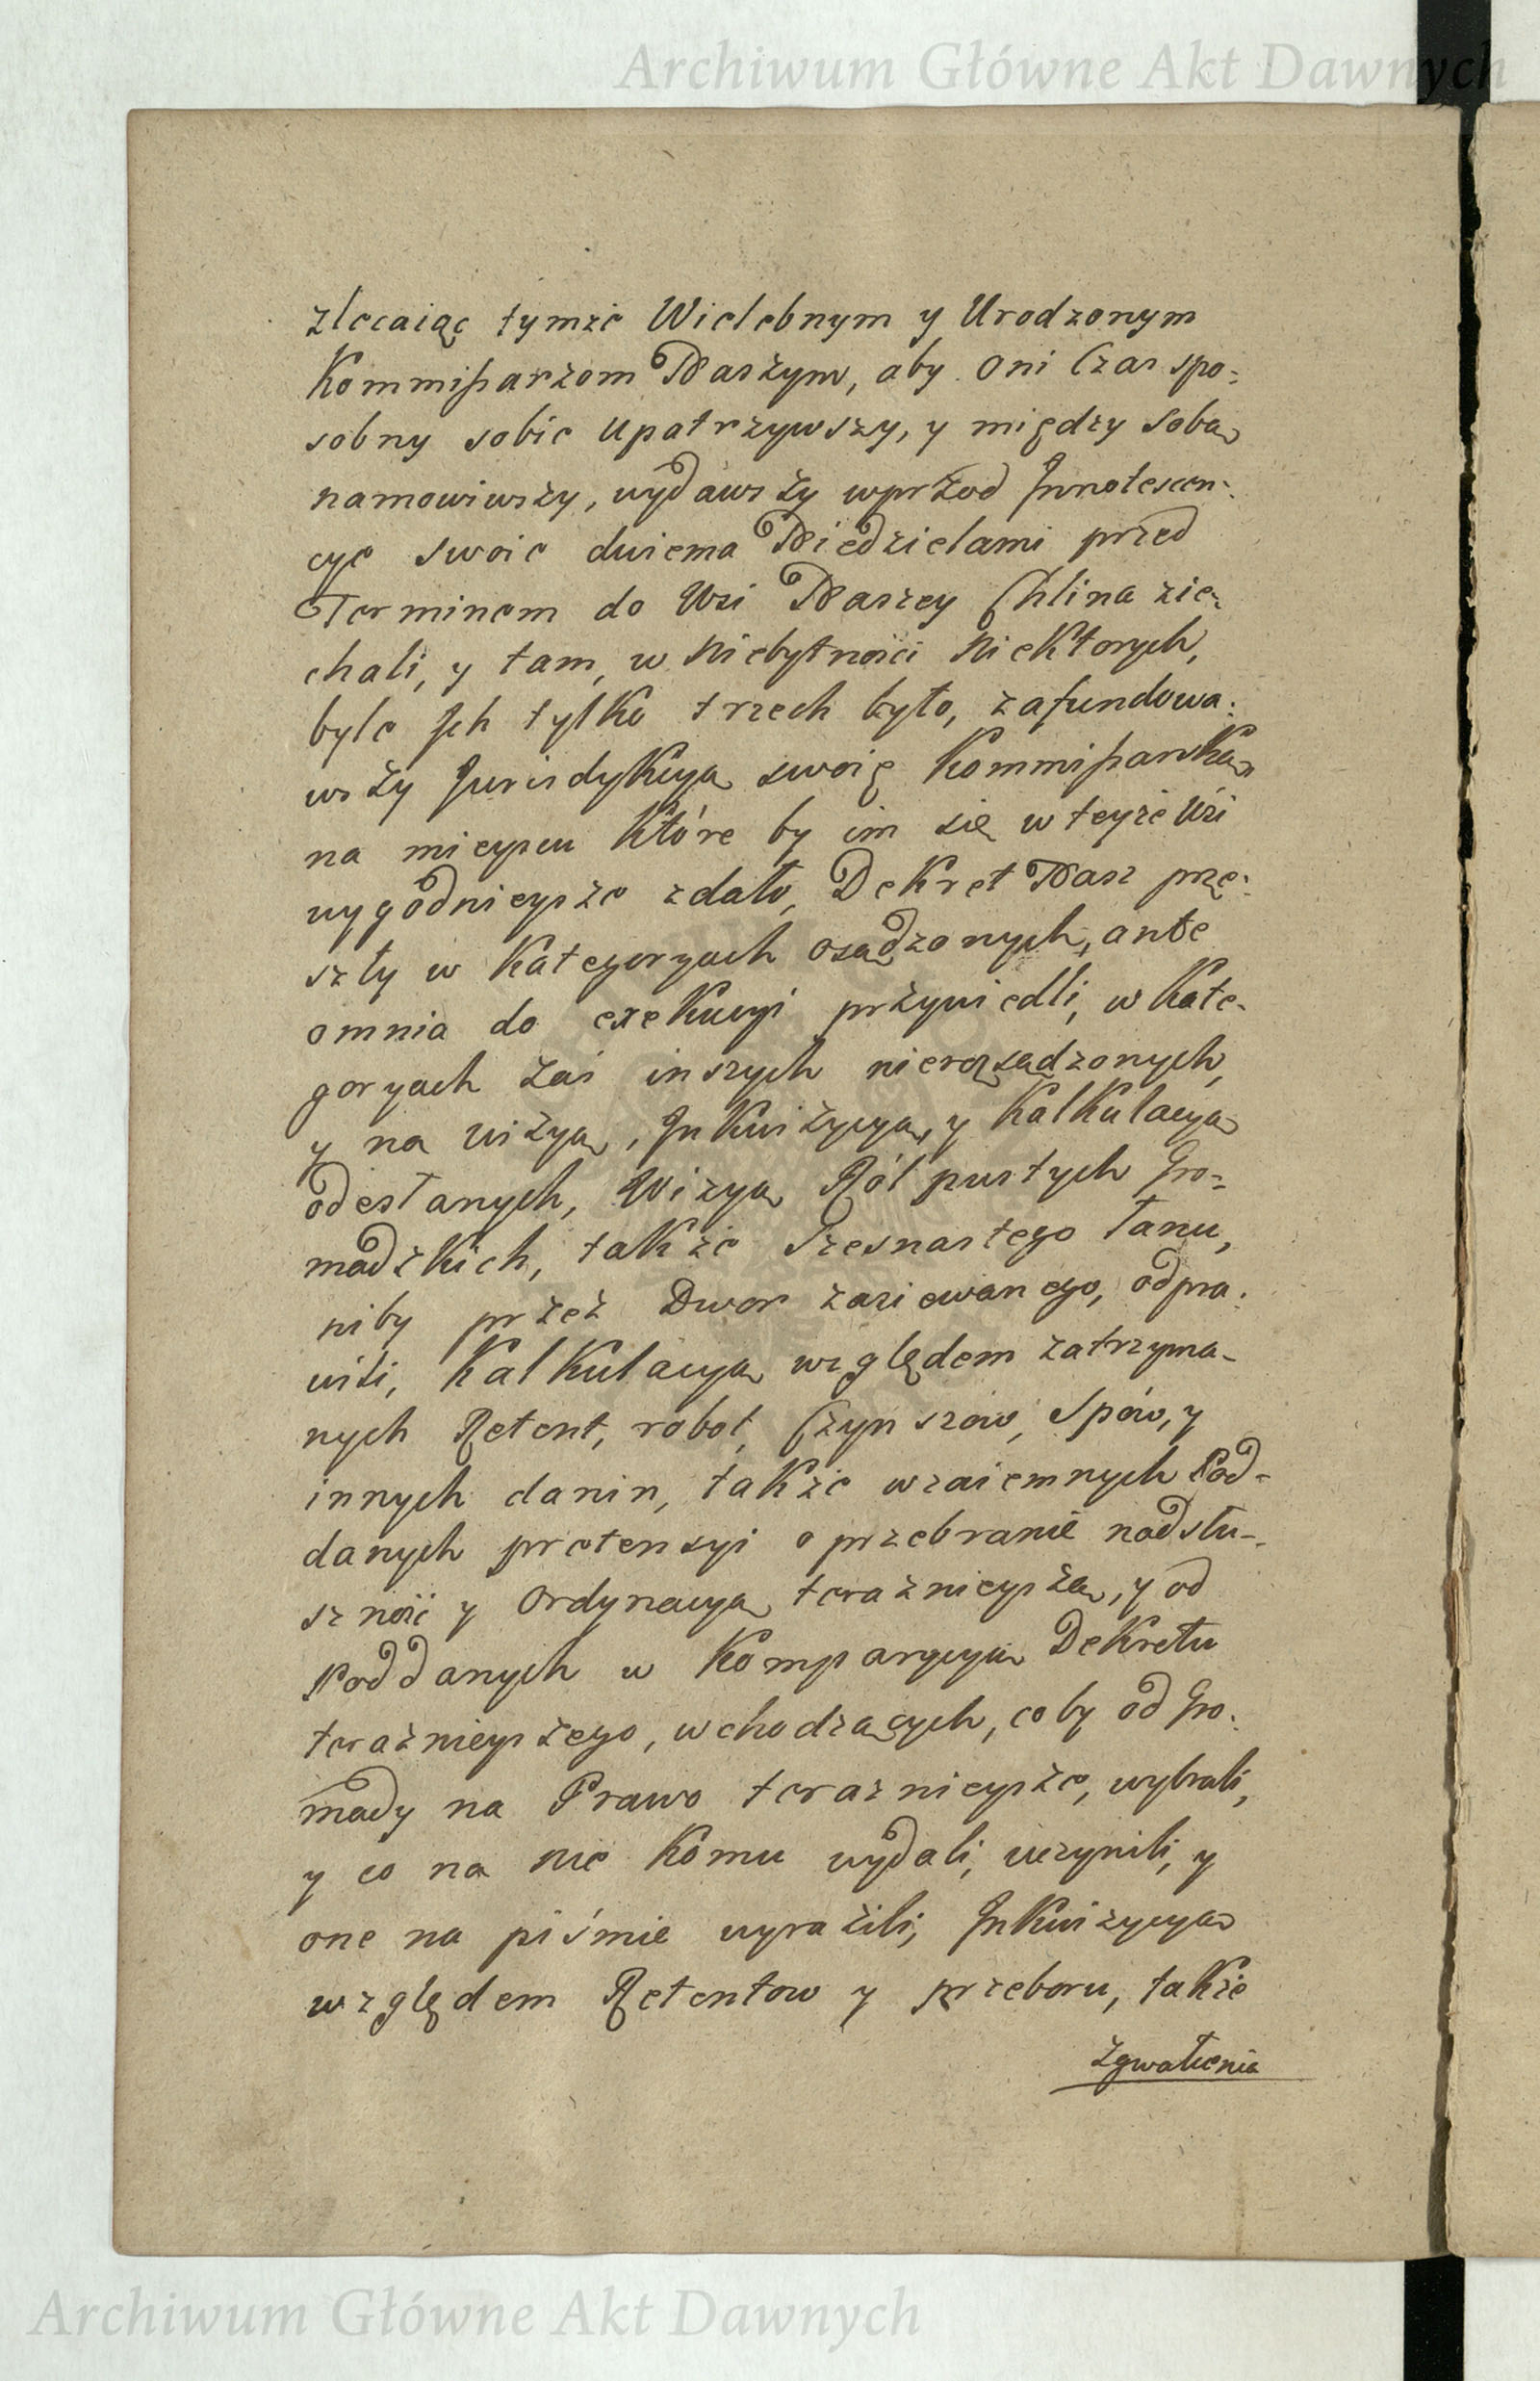 Archiwum Główne Akt Dawnych
zlecaiąc tymże Wielebnym y Urodzonym
Kommißarzom Naszym, aby oni Czas spo-
sobny sobie upatrzywszy, y między sobą
namowiwszy, wydawszy wprzod Innotescen-
cye swoie dwiema Niedzielami przed
Terminem do Wsi Naszey Chlina zie-
chali, y tam, w niebytnosci niektorych,
byle Ich tylko trzech było, zafundowa-
wszy Jurisdykcyą swoię Kommißarską
na mieyscu które by im się w teyże Wsi
wygodnieysze zdało, Dekret Nasz prze-
szły w Kategoryach osądzonych, ante
omnia do exekucyi przywiedli, w Kate-
goryach zaś inszych nierozsądzonych,
y na wizyą, Inkwizycyą, y Kalkulacyą
odesłanych, Wizyą Ról pustych Gro-
madzkich, także Szesnastego Łanu,
niby przez Dwor zasiewanego, odpra-
wili, Kalkulacyą względem zatrzyma-
nych Retent, robot, Czynszow, Spów, y
innych danin, także wzaiemnych Pod-
danych pretensyi o przebranie nadsłu-
szność y Ordynacyą teraznieyszą, y od
Poddanych w Komparycyą Dekretu
teraznieyszego, wchodzących, coby od Gro-
mady na Prawo teraznieysze, wybrali,
y co na nie komu wydali, uczynili, y
one na piśmie wyrazili, Inkwizycyą
względem Retentow y przeboru, także
Zgwałcenia
Archiwum Główne Akt Dawnych